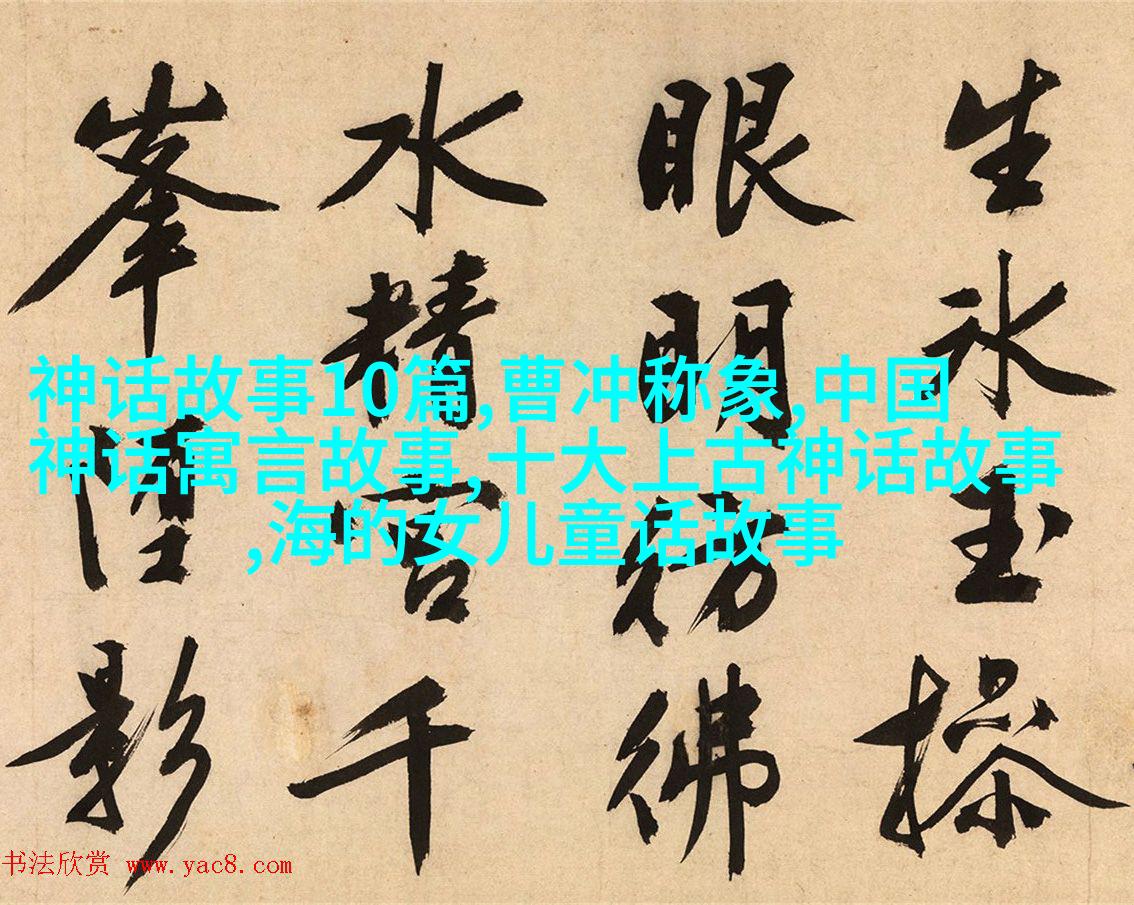 生冰玉操
眼明彷彿
水精宮千
峯墮影
神话故事10篇,曹冲称象,中国
神话寓言故事,十大上古神话故事
,海的女儿童话故事
书法欣赏 www.yac8.com